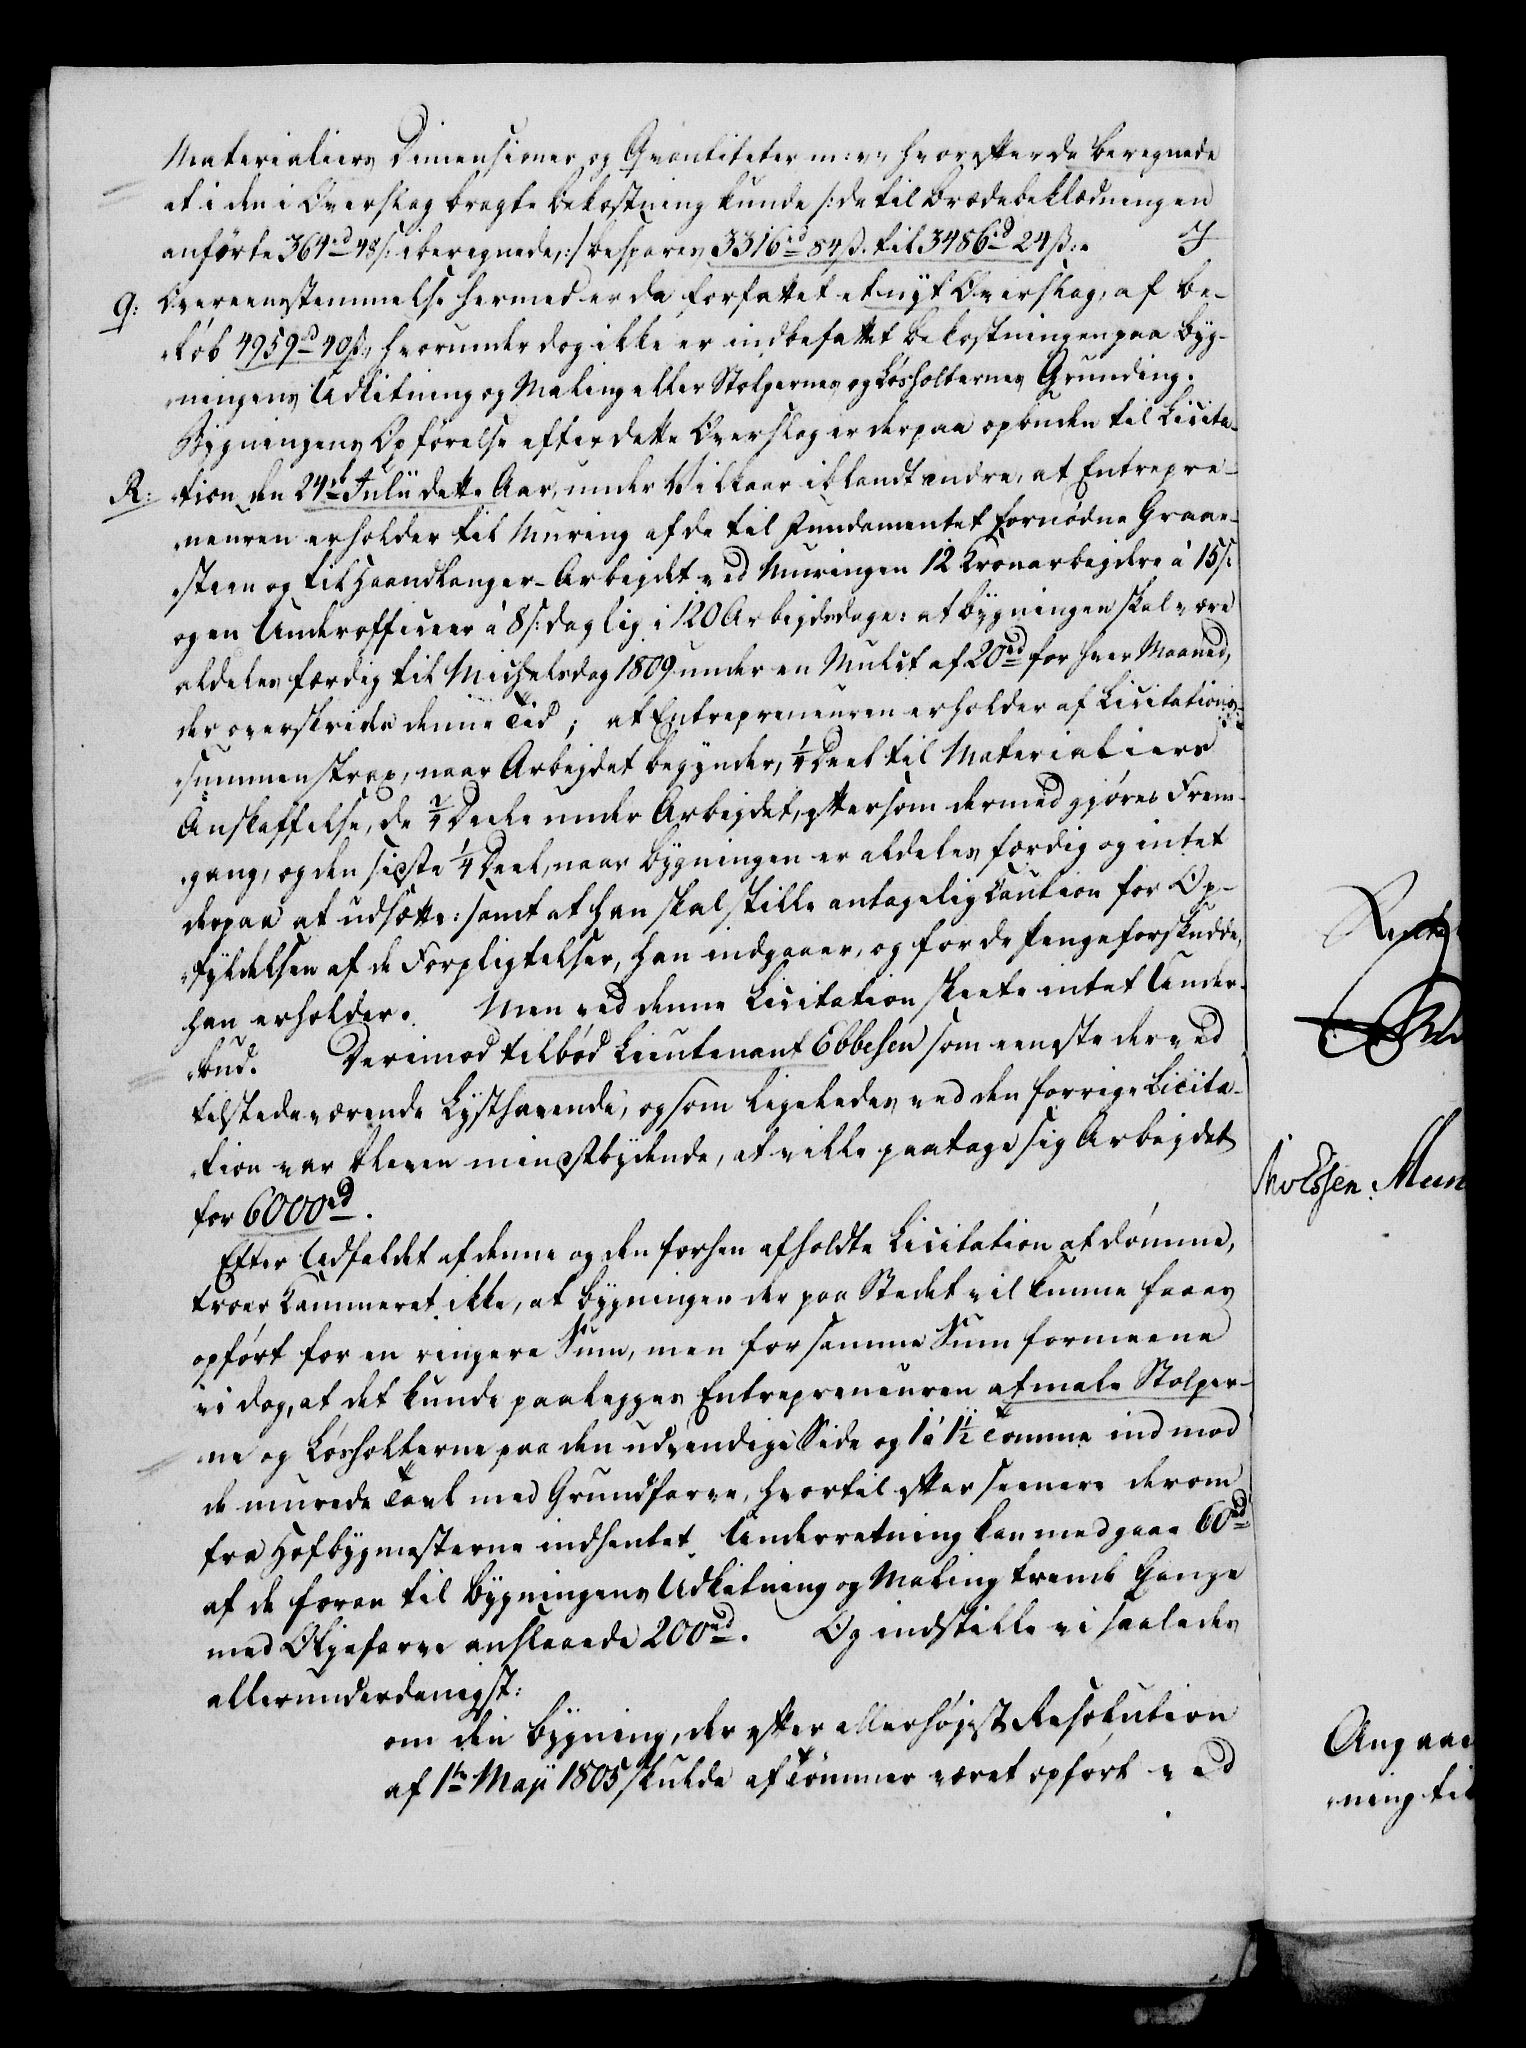 Materialiers Dimensioner og Qvantiteter m: v:, hvorefter de beregnede
at i den i Overslag bragte Bekostning kunde /: de til Brædebeklædningen
anførte 364rd 48s: iberegnede, :/ bespares 3316rd 84ß. til 3486rd 24ß: . I
Q: Overeensstemmelse hermed er da forfattet et nyt Overslag, af Be-
-løb 4959rd 40ß, hvorunder dog ikke er indbefattet Bekostningen paa Byg-
-ningens Udkitning og Maling eller Stolpernes og Løsholternes Grunding.
Bygningens Opførelse efter dette Overslag er derpaa opbuden til Licita-
R: -tion den 24de Julii dette Aar, under Vilkaar iblandt andre, at Entrepre-
-neuren erholder til Muring af de til Fundamentet fornødne Graae-
-steen og til Haandlanger-Arbejdet ved Muringen 12 Kronarbejdere à 15s:
og en Underofficeer à 8s: daglig i 120 Arbejdsdage: at Bygningen skal være
aldeles færdig til Michelsdag 1809 under en Mulct af 20rd for hver Maaned,
der overskrides denne Tid; at Entrepreneuren erholder af Licitations-
-summen strax, naar Arbejdet begynder, 1/4 Deel til Materialiers
Anskaffelse, de 2/4 Deele under Arbejdet, eftersom dermed gjøres Frem-
-gang, og den sidste 1/4 Deel, naar Bygningen er aldeles færdig og intet
derpaa at udsætte: samt at han skal stille antagelig Caution for Op-
-fyldelsen af de Forpligtelser, han indgaaer, og for de Pengeforskudde,
han erholder. Men ved denne Licitation skeete intet Under-
-bud. Derimod tilbød Lieutenant Ebbesen som eeneste der ved
tilstedeværende Lysthavende, og som ligeledes ved den forrige Licita-
-tion var bleven mindstbydende, at ville paatage sig Arbejdet
for 6000rd.
Efter Udfaldet af denne og den forhen afholdte Licitation at dømme,
troer Kammeret ikke, at Bygningen der paa Stedet vil kunne faaes
opført for en ringere Sum, men for samme Sum formeene
vi dog, at det kunde paalegges Entrepreneuren at male Stolper-
-ne og Løsholterne paa den udvendige Side og 1 à 1 1/2 Tomme ind mod
de murede Tavl med Grundfarve, hvortil efter seenere derom
fra Hofbygmesterne indhentet Underretning kan medgaae 60rd
af de foran til Bygningens Udkitning og Maling trende Gange
med Oljefarve anslaaede 200rd. Og indstille vi saaledes
allerunderdanigst:
om den Bygning, der efter allerhøjst Resolution
af 1ste Maji 1805 skulde af Tømmer været opført ved
Essen. Mun
Angaae
-ning til